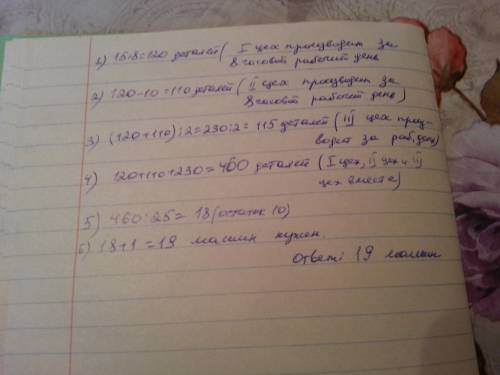 1) 15·8=120 деталей ( I цех производит за
8 часовой рабочий день
2) 120-10=110 деталей ( II цех производит за
8 часовой рабочий день)
3) (120+110):2=230:2=115 деталей ( III цех произ-
водит за раб.день)
4) 120+110+230=460 деталей ( I цех, II цех и III
цех вместе)
5) 460:25= 18 (остаток 10)
6) 18+1=19 машин нужен.
Ответ: 19 машин